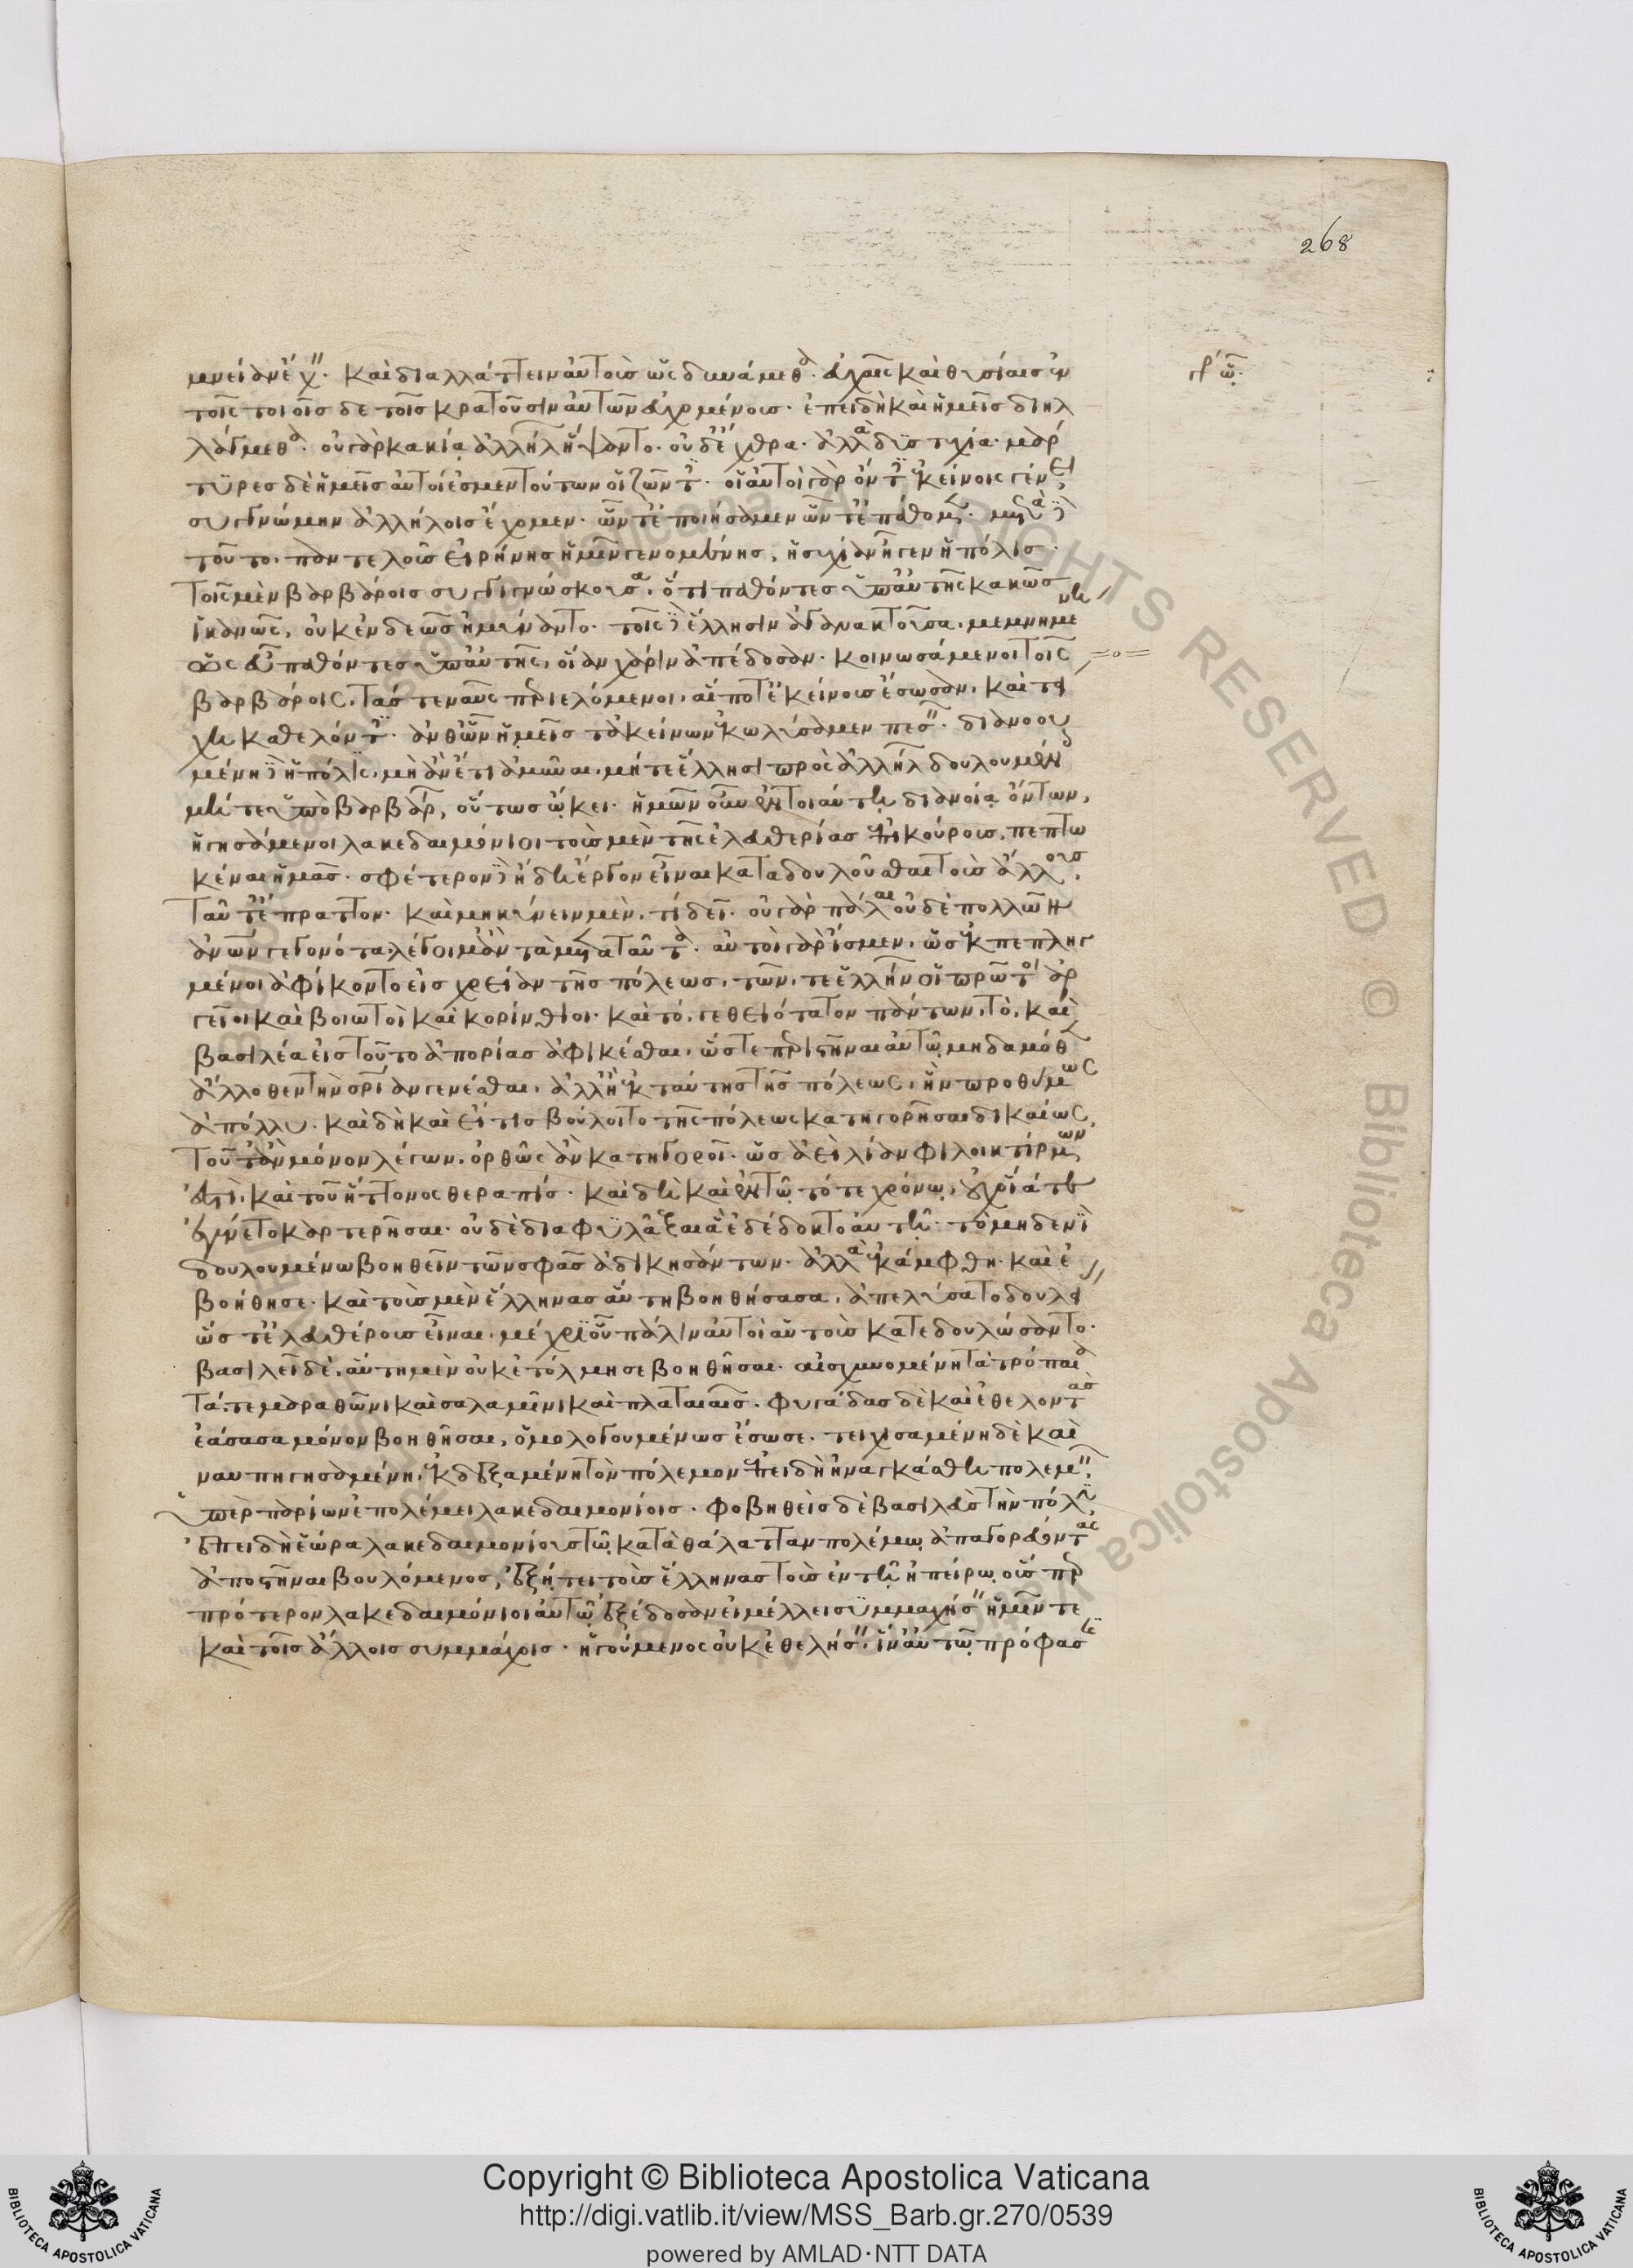 268
μνείαν ἔχειν. καὶ διαλλάττειν αὐτοὺς ὡς δυνάμεθα. εὐχαῖς καὶ θυσίαις ἐν
γρ ᾧ.
τοῖς τοιοῖσδε τοῖς κρατοῦσιν αὐτῶν εὐχομένοις. ἐπειδὴ καὶ ἡμεῖς διηλ
λάγμεθα. οὐ γὰρ κακίᾳ ἀλλήλων ἥψαντο. οὐδ' ἔχθρᾳ. ἀλλὰ δυστυχίᾳ. μάρ
τυρες δὲ ἡμεῖς αὐτοί ἐσμεν τούτων οἱ ζῶντες. οἱ αὐτοὶ γὰρ ὄντες ἐκείνοις γένει,
συγγνώμην ἀλλήλοις ἔχομεν. ὧν τ' ἐποιήσαμεν ὧν τ' ἐπάθομεν. μετὰ δὲ
τοῦτο, παντελῶς εἰρήνης ἡμῖν γενομένης, ἡσυχίαν ἦγεν ἡ πόλις.
τοῖς μὲν βαρβάροις συγγιγνώσκουσα, ὅτι παθόντες ὑπ' αὐτῆς κακῶς
ἱκανῶς, οὐκ ἐνδεῶς ἠμύναντο. τοῖς δὲ ἕλλησιν ἀγανακτοῦσα, μεμνημένη
ὡς εὖ παθόντες ὑπ' αὐτῆς, οἵαν χάριν ἀπέδοσαν. κοινωσάμενοι τοῖς
βαρβάροις, τάς τε ναῦς περιελόμενοι, αἵ ποτ' ἐκείνους ἔσωσαν, καὶ τεί
χη καθελόντες. ἀνθ' ὧν ἡμεῖς τἀκείνων ἐκωλύσαμεν πεσεῖν. διανοου
μένη δὲ ἡ πόλις, μὴ ἂν ἔτι ἀμῦναι, μήτε ἕλλησι πρὸς ἀλλήλων δουλουμένοις
μήτε ὑπὸ βαρβάρων, οὕτως ᾤκει. ἡμῶν οὖν ἐν τοιαύτῃ διανοίᾳ ὄντων,
ἡγησάμενοι λακεδαιμόνιοι τοὺς μὲν τῆς ἐλευθερίας ἐπικούρους, πεπτω
κέναι ἡμᾶς. σφέτερον δὲ ἤδη ἔργον εἶναι καταδουλοῦσθαι τοὺς ἄλλους,
ταῦτ' ἔπραττον. καὶ μηκύνειν μὲν, τί δεῖ. οὐ γὰρ πάλαι οὐδὲ πολλῶν ἐτ
ἂν ὧν γεγονότα λέγοιμι ἂν τὰ μετὰ ταῦτα. αὐτοὶ γὰρ ἴσμεν, ὡς ἐκπεπληγ
μένοι ἀφίκοντο εἰς χρείαν τῆς πόλεως, τῶν, τε ἑλλήνων οἱ πρῶτοι ἀρ
γεῖοι καὶ βοιωτοὶ καὶ κορίνθιοι. καὶ τό, γε θειότατον πάντων, τὸ, καὶ
βασιλέα εἰς τοῦτο ἀπορίας ἀφικέσθαι, ὥστε περιστῆναι αὐτῷ μηδαμόθεν
ἄλλοθεν τὴν σωτηρίαν γενέσθαι, ἀλλ' ἢ ἐκ ταύτης τῆς πόλεως, ἣν προθύμως
ἀπώλλυ. καὶ δὴ καὶ εἴ τις βούλοιτο τῆς πόλεως κατηγορῆσαι δικαίως,
τοῦτ' ἂν μόνον λέγων, ὀρθῶς ἂν κατηγοροῖ. ὡς ἀεὶ λίαν φιλοικτίρμων
ἐστὶ, καὶ τοῦ ἥττονος θεραπίς. καὶ δὴ καὶ ἐν τῷ τότε χρόνῳ, οὐχ οἵα τε
ἐγένετο καρτερῆσαι. οὐδὲ διαφυλάξαι ἃ ἐδέδοκτο αὐτῇ. τὸ μηδενὶ
δουλουμένῳ βοηθεῖν τῶν σφᾶς ἀδικησάντων. ἀλλὰ ἐκάμφθη. καὶ ἐ
βοήθησε. καὶ τοὺς μὲν ἕλληνας αὐτὴ βοηθήσασα, ἀπελύσατο δουλείας
ὥστ' ἐλευθέρους εἶναι. μέχρι οὗ πάλιν αὐτοὶ αὑτοὺς κατεδουλώσαντο.
βασιλεῖ δὲ, αὐτὴ μὲν οὐκ ἐτόλμησε βοηθῆσαι. αἰσχυνομένη τὰ τρόπαια
τά, τε μαραθῶνι καὶ σαλαμῖνι καὶ πλαταιαῖς. φυγάδας δὲ καὶ ἐθελοντὰς
ἐάσασα μόνον βοηθῆσαι, ὁμολογουμένως ἔσωσε. τειχισαμένη δὲ καὶ
ναυπηγησαμένη, ἐκδεξαμένη τὸν πόλεμον ἐπειδὴ ἠναγκάσθη πολεμεῖν,
ὑπὲρ παρίων ἐπολέμει λακεδαιμονίοις. φοβηθεὶς δὲ βασιλεὺς τὴν πόλιν
ἐπειδὴ ἑώρα λακεδαιμονίους τῷ κατὰ θάλατταν πολέμῳ ἀπαγορεύοντας
ἀποστῆναι βουλόμενος, ἐξῄτει τοὺς ἕλληνας τοὺς ἐν τῇ ἠπείρῳ οὕσπερ
πρότερον λακεδαιμόνιοι αὐτῷ ἐξέδοσαν εἰ μέλλει συμμαχήσειν ἡμῖν τε
καὶ τοῖς ἄλλοις συμμάχοις. ἡγούμενος οὐκ ἐθελήσειν, ἵν' αὐτῷ πρόφασις
Copyright © Biblioteca Apostolica Vaticana
http://digi.vatlib.it/view/MSS_Barb.gr.270/0539
powered by AMLAD·NTT DATA